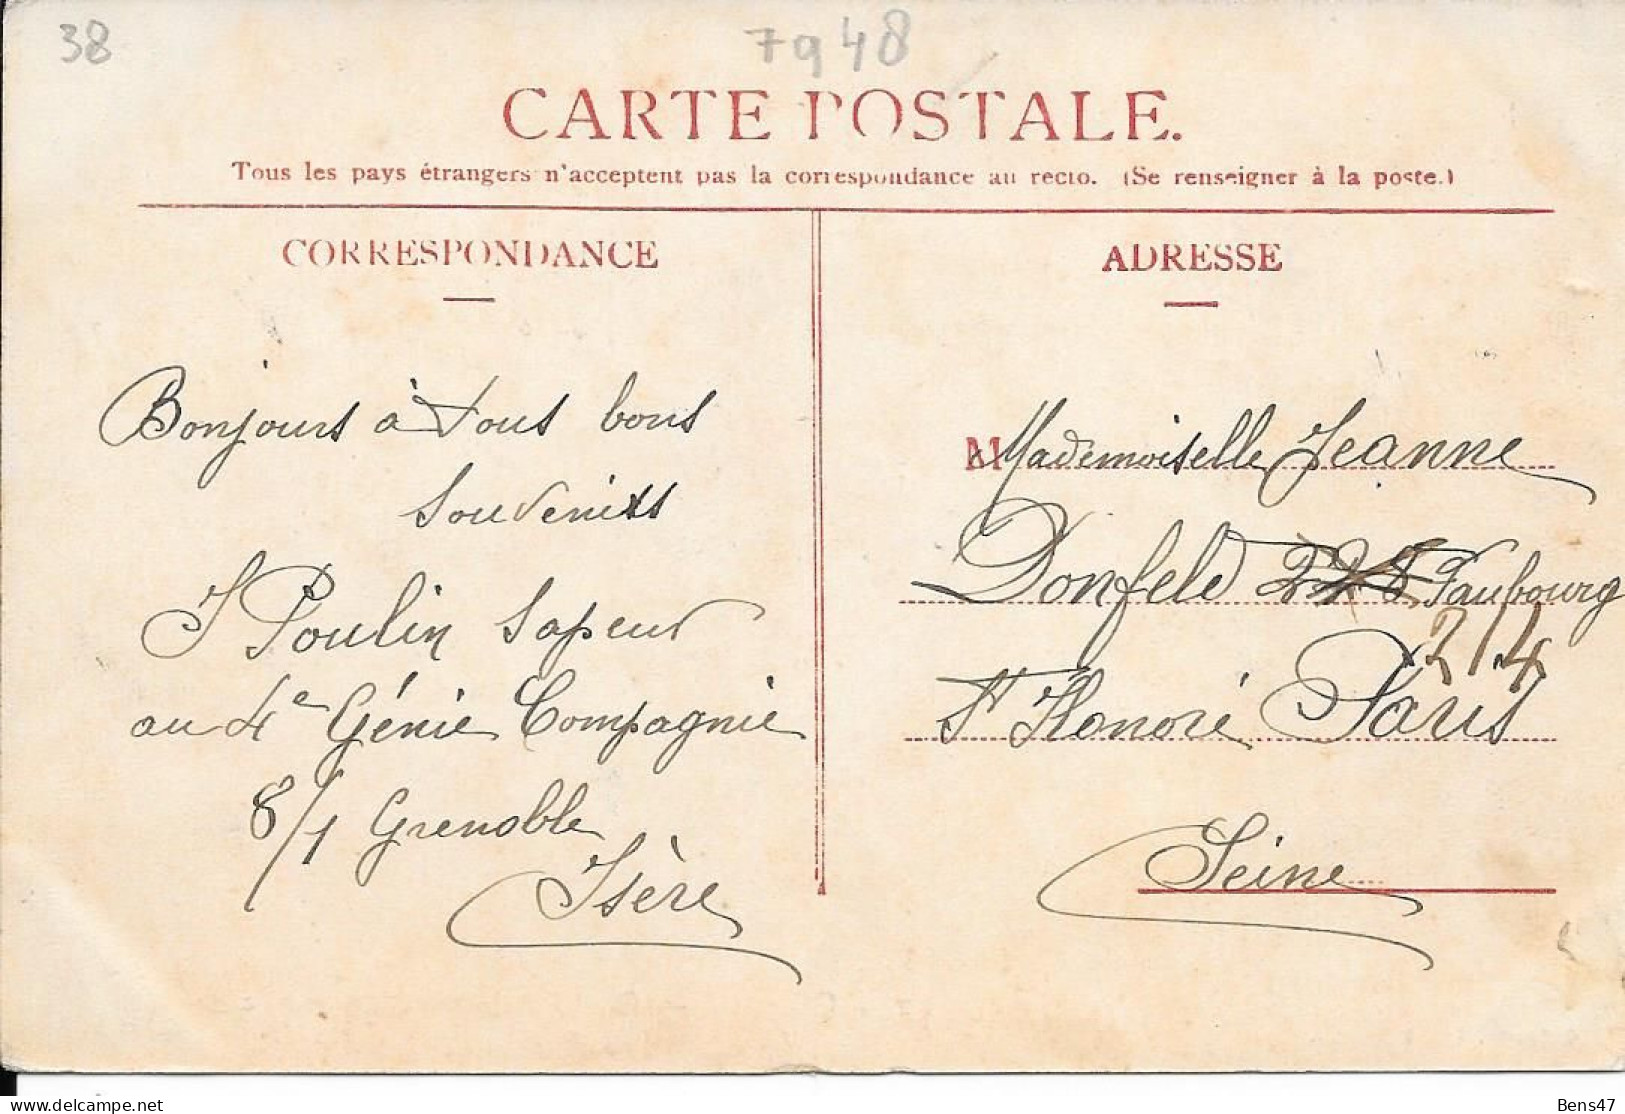 38
7948
CARTE POSTALE.
Tous les pays étrangers n'acceptent pas la correspondance au recto. (Se renseigner à la poste.)
CORRESPONDANCE
ADRESSE
Bonjours à tous bons
souvenirs
J Poulin sapeur
au 4e Génie Compagnie
8/1 Grenoble
Isère
M Mademoiselle Jeanne
Donfeld 228 Faubourg
214
St Honoré Paris
Seine
delcampe.net
Bens47